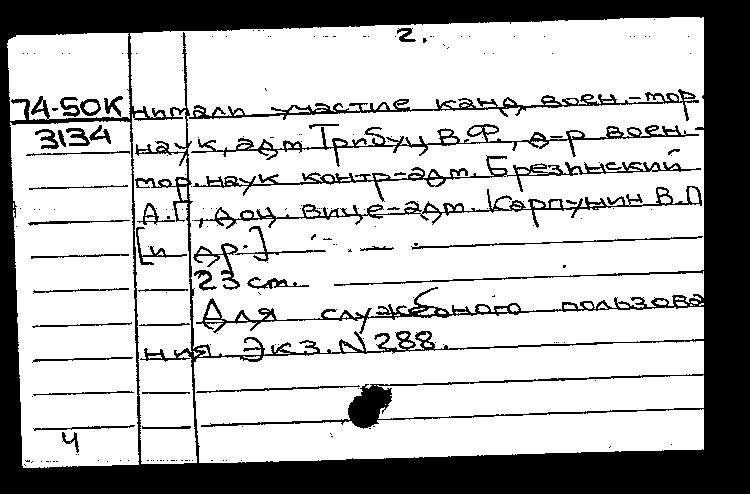 2.
74-50К нимали участие канд. воен.-мор.
3134
наук, адм. Трибуц В.Ф., д-р воен.-
мор. наук контр-адм. Брезинский
А.П., доц. вице-адм. Карпунин В.П.
[и др.]
23 см.
Для служебного пользова
ния. Экз. N 288.
4